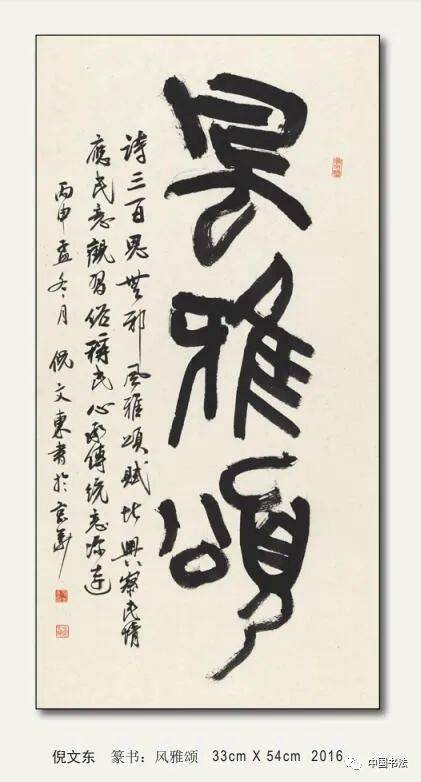 風雅頌
詩三百思無邪風雅頌賦比興察民情
應民意觀習俗民心承傳統意深遠
丙申孟冬月倪文東書於京華
倪文东 篆书：风雅颂 33cm X 54cm 2016
中国书法